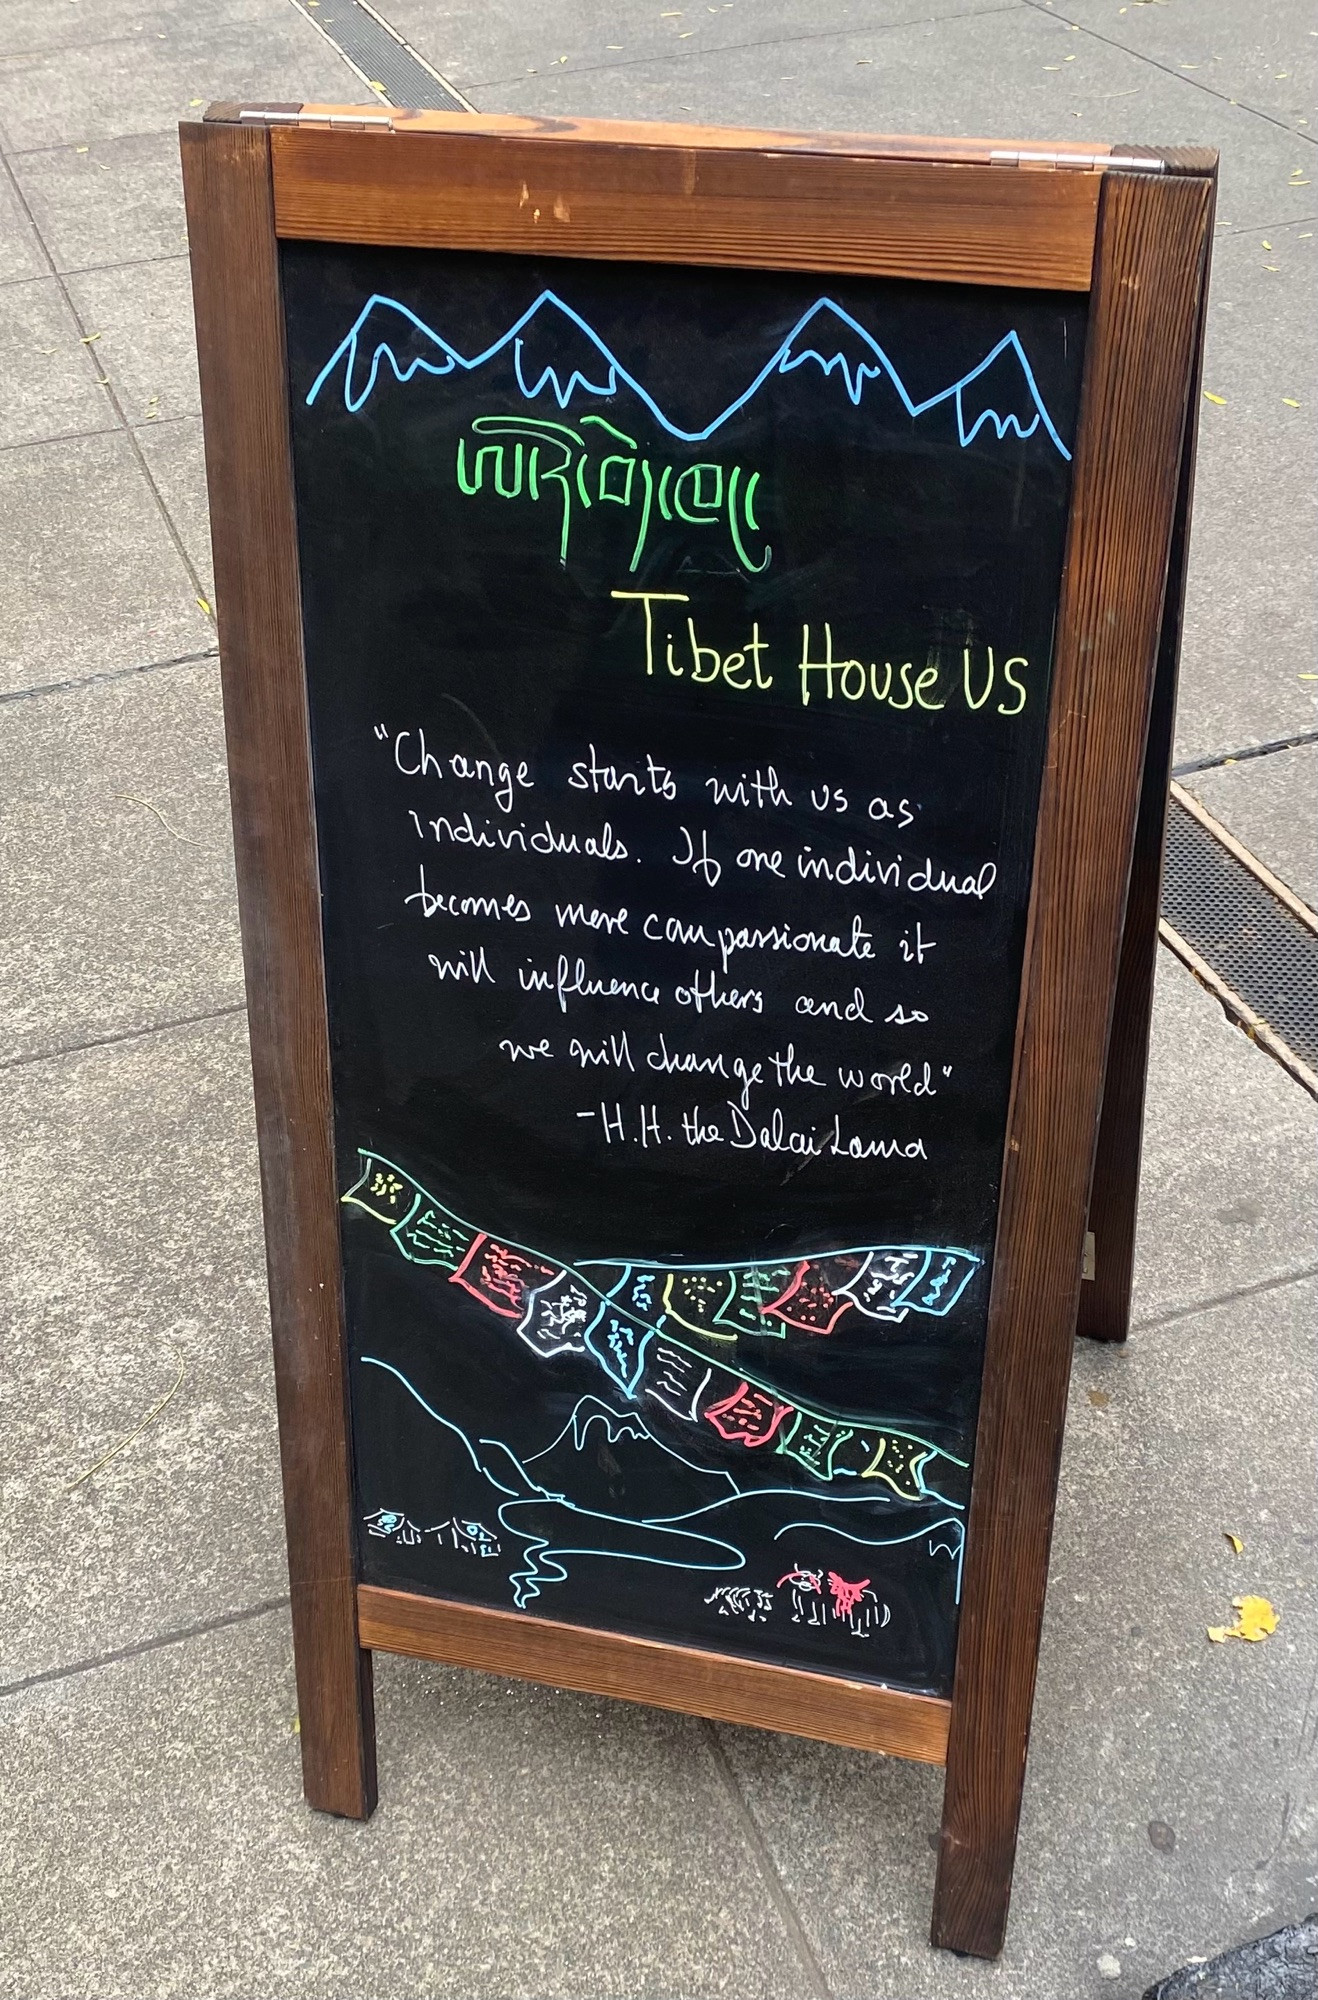 Tibet House US
"Change starts with us as
individuals. If one individual
becomes more compassionate it
will influence others and so
we will change the world"
-H.H. the Dalai Lama